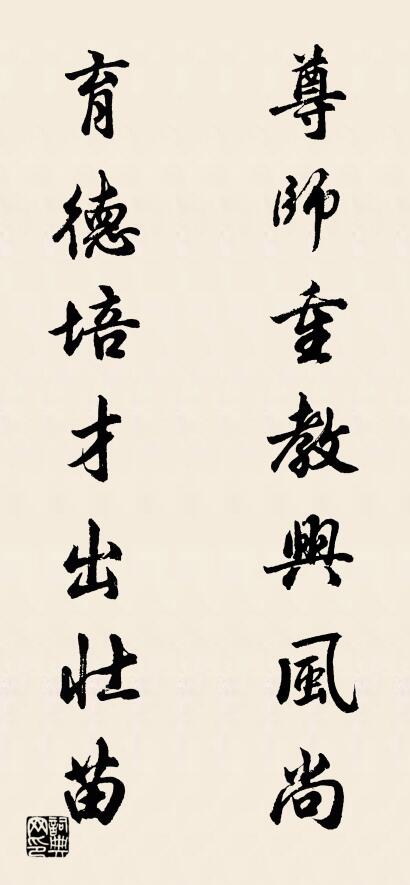 尊師重教興風尚
育德培才出壯苗
詞典網印